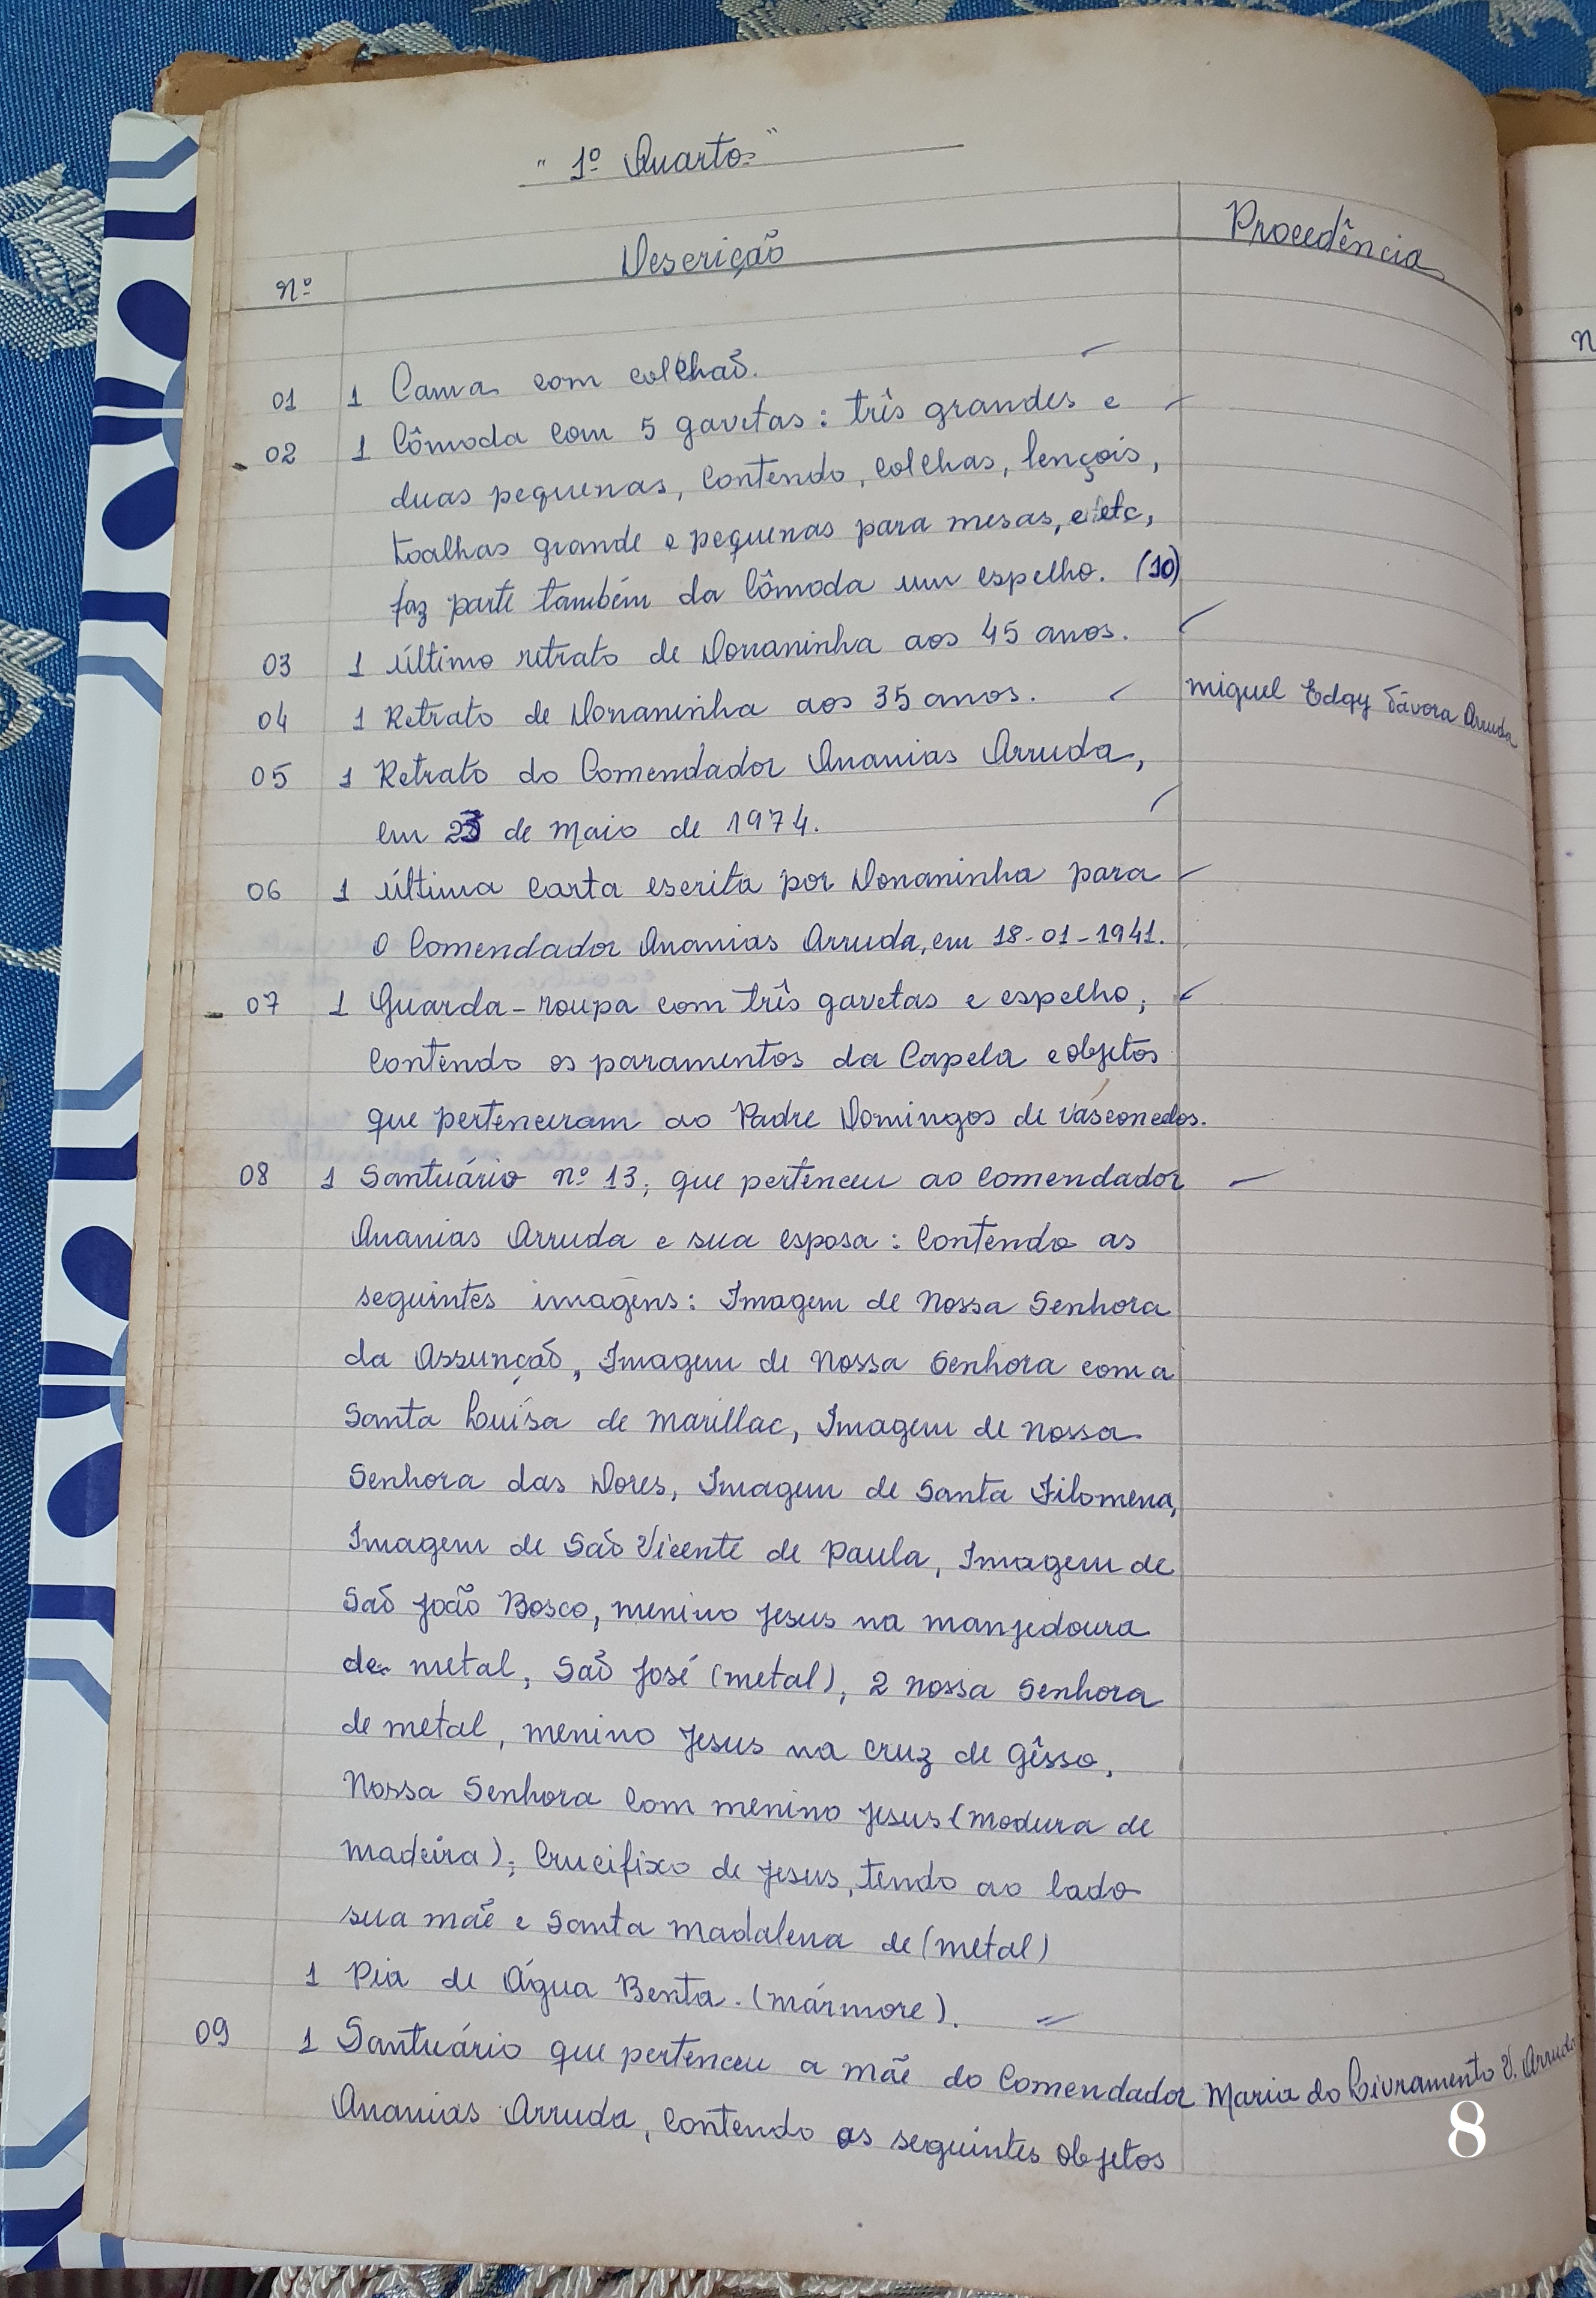 " 1º Quarto "
Nº Descrição Procedência
01 1 Cama com colchão.
02 1 Cômoda com 5 gavetas: três grandes e
duas pequenas, contendo, colchas, lençois,
toalhas grande e pequenas para mesas, e etc,
faz parte também da Cômoda um espelho. (10)
03 1 último retrato de Donaninha aos 45 anos.
04 1 Retrato de Donaninha aos 35 anos. Miguel Edgy Távora Arruda
05 1 Retrato do Comendador Ananias Arruda,
em 23 de Maio de 1974.
06 1 última carta escrita por Donaninha para
O Comendador Ananias Arruda, em 18-01-1941.
07 1 Guarda-roupa com três gavetas e espelho,
contendo os paramentos da Capela e objetos
que pertenceram ao Padre Domingos de Vásconcedos.
08 1 Santuário nº 13, que pertenceu ao Comendador
Ananias Arruda e sua esposa: Contendo as
seguintes imagens: Imagem de Nossa Senhora
da Assunção, Imagem de Nossa Senhora com a
Santa Luísa de Marillac, Imagem de Nossa
Senhora das Dores, Imagem de Santa Filomena,
Imagem de São Vicente de Paula, Imagem de
São João Bosco, menino Jesus na manjedoura
de metal, São José (metal), 2 Nossa Senhora
de metal, menino Jesus na cruz de gêsso,
Nossa Senhora com menino Jesus (modura de
madeira); Crucifixo de Jesus, tendo ao lado
sua mãe e Santa Madalena de (metal)
1 Pia de Água Benta. (mármore).
09 1 Santuário que pertenceu a mãe do Comendador Maria do Livramento V. Arruda
Ananias Arruda, contendo os seguintes objetos
8
N